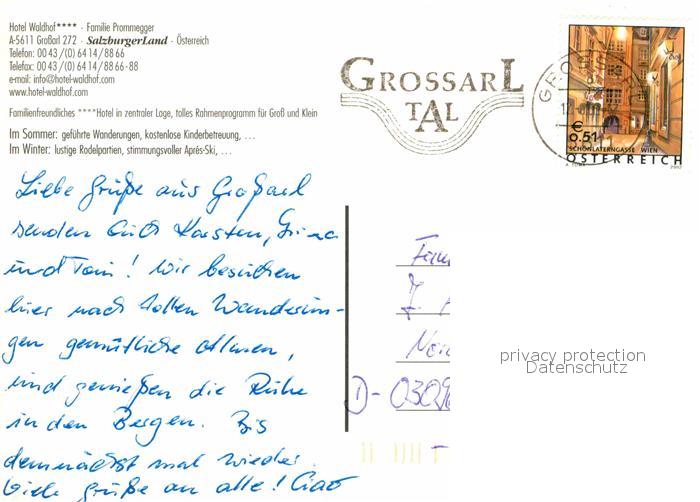 Hotel Waldhof**** · Familie Prommegger
A-5611 Großarl 272 · SalzburgerLand · Österreich
Telefon: 00 43 / (0) 64 14 / 88 66
Telefax: 00 43 / (0) 64 14 / 88 66 - 88
e-mail: info@hotel-waldhof.com
www.hotel-waldhof.com
Familienfreundliches ****Hotel in zentraler Lage, tolles Rahmenprogramm für Groß und Klein
Im Sommer: geführte Wanderungen, kostenlose Kinderbetreuung, ...
Im Winter: lustige Rodelpartien, stimmungsvoller Aprés-Ski, ...
GROSSARL
TAL
GRO
€
0.51
SCHÖNLATERNGASSE WIEN
ÖSTERREICH
2002
Liebe Grüße aus Großarl
senden Euch Karsten,
und Tom! Wir besuchen
hier nach tollen Wanderun-
gen gemütliche Almen,
und genießen die Ruhe
in den Bergen. Bis
demnächst mal wieder.
Viele Grüße an alle! Ciao
Fam
D-0309
privacy protection
Datenschutz